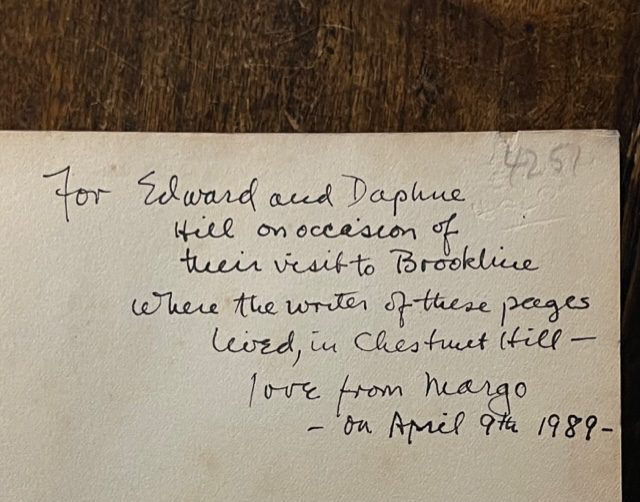 4251
For Edward and Daphne
Hill on occasion of
their visit to Brookline
where the writer of these pages
lived, in Chestnut Hill —
love from Margo
- on April 9th 1989 -